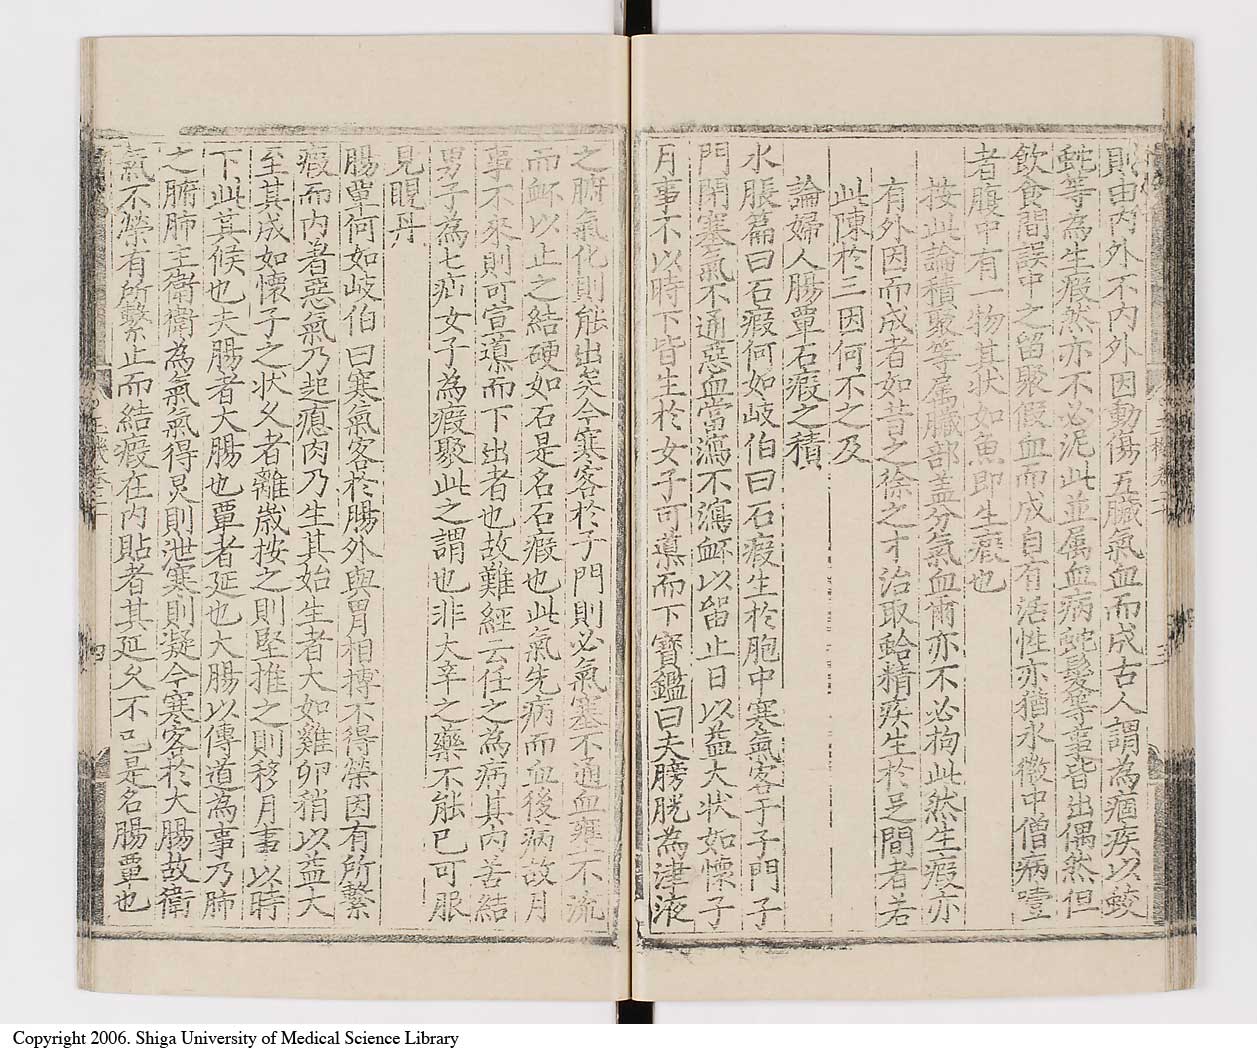 則由內外不內外因動傷五臟氣血而成古人謂為痼疾以蛟
蛇等為生瘕然亦不必泥此並属血病蛇髮等事皆出偶然但
飲食間誤中之留聚假血而成自有活性亦猶永徽中僧病噎
者腹中有一物其状如魚即生瘕也
按此論積聚等属臟部盖分氣血爾亦不必拘此然生瘕亦
有外因而成者如昔之徐之才治取蛤精疾生於足間者若
此陳於三因何不之及
論婦人腸覃石瘕之積
水脹篇曰石瘕何如岐伯曰石瘕生於胞中寒氣客于子門子
門閉塞氣不通惡血當瀉不瀉衃以留止日以益大状如懷子
月事不以時下皆生於女子可導而下寶鑑曰夫膀胱為津液
之腑氣化則能出矣今寒客於子門則必氣塞不通血壅不流
而衃以止之結硬如石是名石瘕也此氣先病而血後病故月
事不來則可宣導而下出者也故難經云任之為病其內苦結
男子為七疝女子為瘕聚此之謂也非大辛之藥不能已可服
見晛丹
腸覃何如岐伯曰寒氣客於腸外與胃相搏不得榮因有所繫
瘕而內著惡氣乃起瘜肉乃生其始生者大如雞卵稍以益大
至其成如懷子之状久者離嵗按之則堅推之則移月事以時
下此其候也夫腸者大腸也覃者延也大腸以傳道為事乃肺
之腑肺主衛衛為氣氣得炅則泄寒則凝今寒客於大腸故衛
氣不榮有所繫止而結瘕在內貼者其延久不已是名腸覃也
四